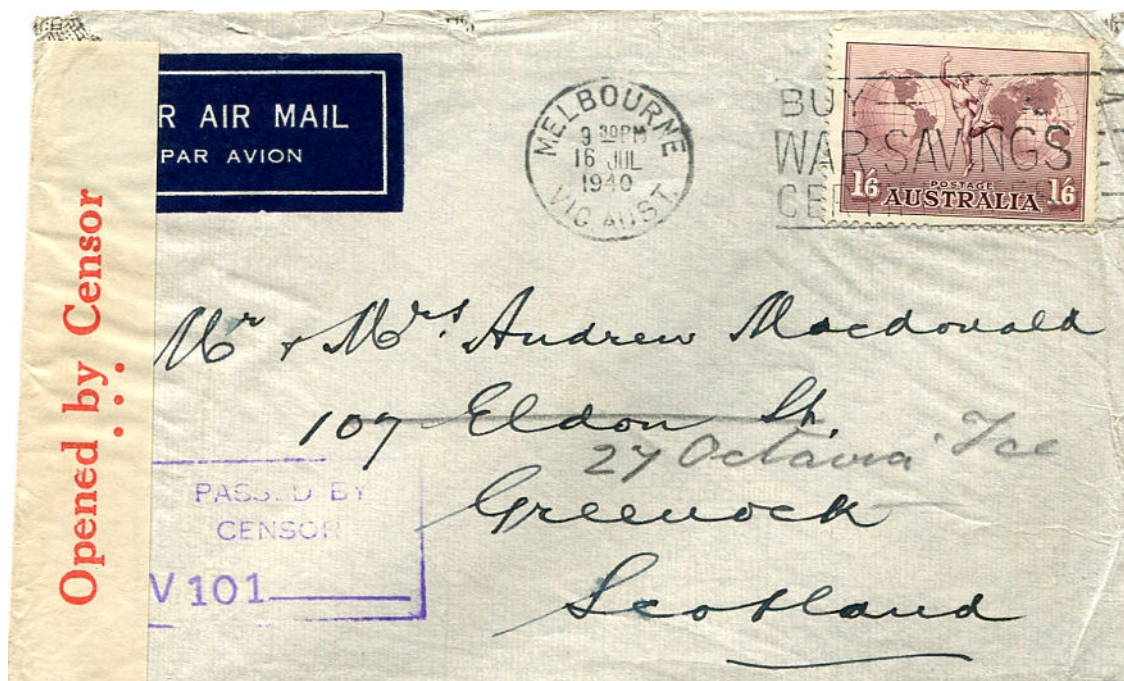 R AIR MAIL
PAR AVION
MELBOURNE
9 30 PM
16 JUL
1940
VIC AUST.
BUY
WAR SAVINGS
1/6 POSTAGE 1/6
AUSTRALIA
Opened by Censor
Mr + Mrs Andrew Macdonald
107 Eldon St.
27 Octavia Tce
Greenock
Scotland
PASSED BY
CENSOR
V 101